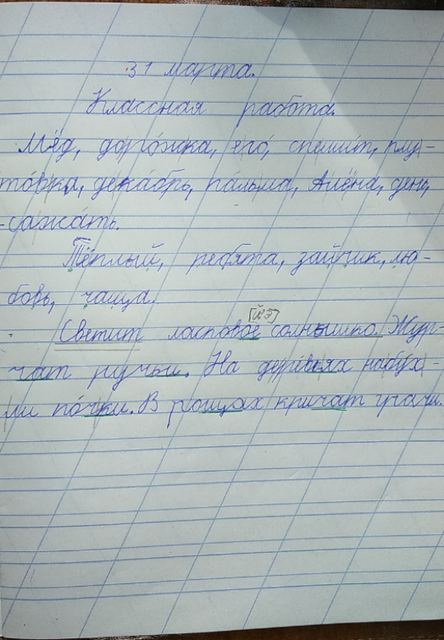 31 марта.
Классная работа.
Мёд, доро́жка, его́, спеши́т, плу-
то́вка, дека́брь, па́льма, Алёна, день,
сажа́ть.
Тёплый, ребя́та, за́йчик, лю-
бо́вь, ча́ща.
[й'э]
Светит ласковое солнышко. Жур-
чат ручьи. На дере́вьях набу́х-
ли по́чки. В рощах кричат грачи.